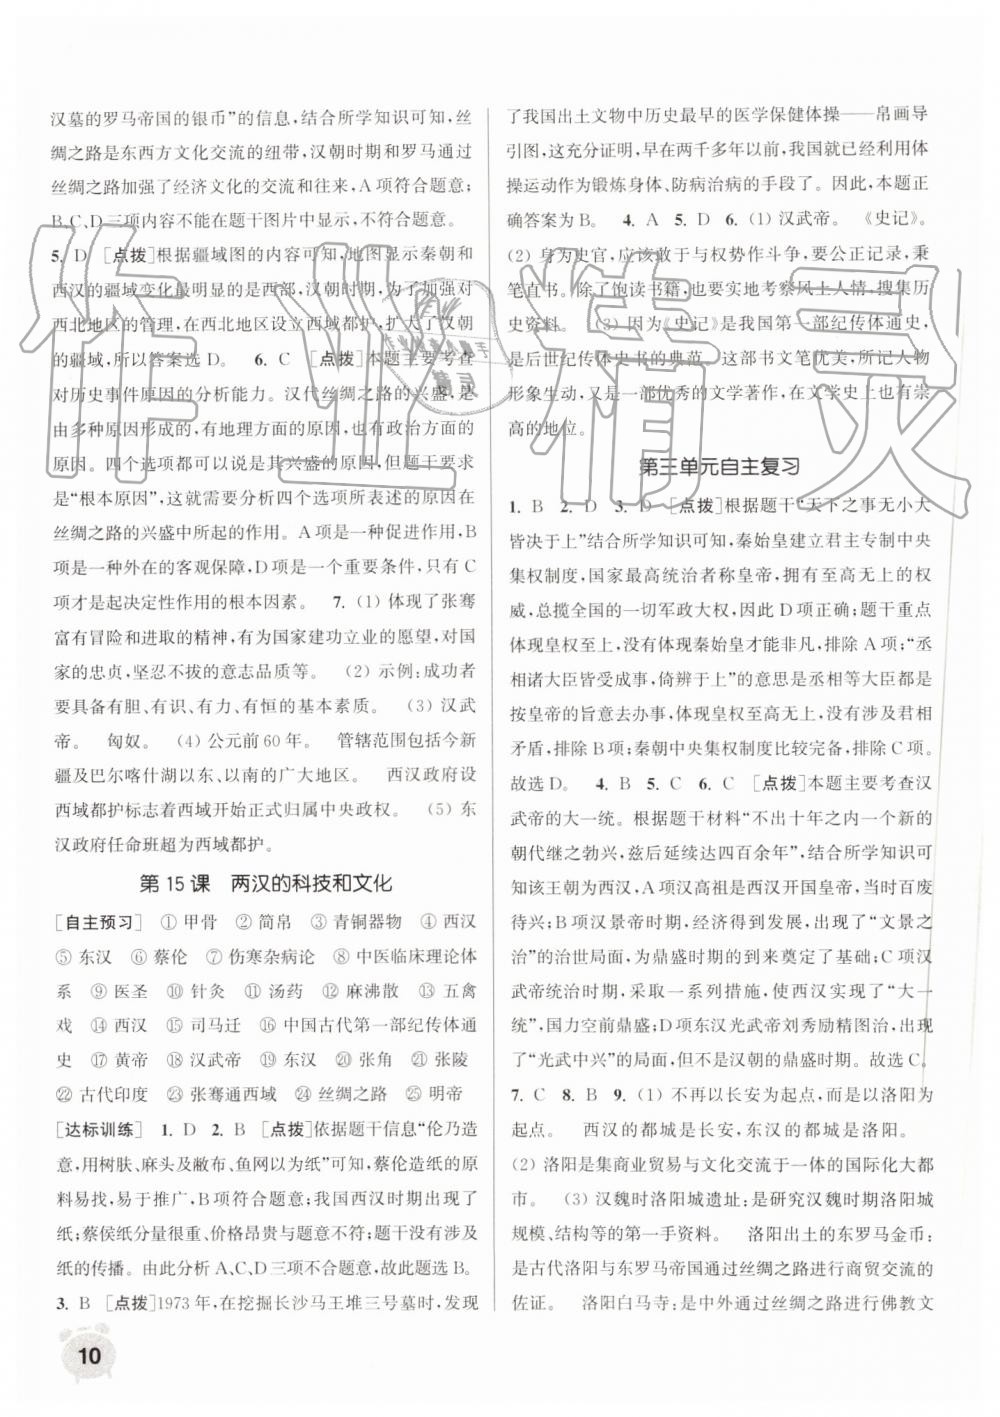 汉墓的罗马帝国的银币”的信息,结合所学知识可知,丝
绸之路是东西方文化交流的纽带,汉朝时期和罗马通过
丝绸之路加强了经济文化的交流和往来,A项符合题意;
B、C、D三项内容不能在题干图片中显示,不符合题意。
5. D [点拨]根据疆域图的内容可知,显示秦朝和
西汉的疆域变化最明显的是西部,汉朝时期,为了加强对
西北地区的管理,在西北地区设立西域都护,扩大了汉朝
的疆域,所以答案选D。 6. C [点拨]本题主要考查
对历史事件原因的分析能力。汉代丝绸之路的兴盛,是
由多种原因形成的,有地理方面的原因,也有政治方面的
原因。四个选项都说的是其兴盛的原因,但题干要求是
“根本原因”,这就需要分析四个选项所表述的原因在
丝绸之路的兴盛中所起的作用。A项是一种促进作用,B
项是一种外在的客观保障,D项是一个重要条件,只有C
项才是起决定性作用的根本因素。 7. (1) 体现了张骞
富有冒险和进取的精神,有为国家建功立业的愿望,对国
家的忠贞,坚忍不拔的意志品质等。 (2) 示例:成功者
要具备有胆、有识、有力、有恒的基本素质。 (3) 汉武
帝。 匈奴。 (4) 公元前60年。 管辖范围包括今新
疆及巴尔喀什湖以东、以南的广大地区。 西汉政府设
西域都护标志着西域开始正式归属中央政权。 (5) 东
汉政府任命班超为西域都护。
第15课 两汉的科技和文化
[自主预习] ① 甲骨 ② 简帛 ③ 青铜器物 ④ 西汉
⑤ 东汉 ⑥ 蔡伦 ⑦ 伤寒杂病论 ⑧ 中医临床理论体
系 ⑨ 医圣 ⑩ 针灸 ⑪ 汤药 ⑫ 麻沸散 ⑬ 五禽
戏 ⑭ 西汉 ⑮ 司马迁 ⑯ 中国古代第一部纪传体通
史 ⑰ 黄帝 ⑱ 汉武帝 ⑲ 东汉 ⑳ 张角 ㉑ 张陵
㉒ 古代印度 ㉓ 张骞通西域 ㉔ 丝绸之路 ㉕ 明帝
[达标训练] 1. D 2. B [点拨]依据题干信息“伦乃造
意,用树肤、麻头及敝布、鱼网以为纸”可知,蔡伦造纸的原
料易找,易于推广,B项符合题意;我国西汉时期出现了
纸;蔡侯纸分量很重、价格昂贵与题意不符;题干没有涉及
纸的传播。由此分析A、C、D三项不合题意,故此题选B。
3. B [点拨]1973年,在挖掘长沙马王堆三号墓时,发现
10
了我国出土文物中历史最早的医学保健体操——帛画导
引图,这充分证明,早在两千多年以前,我国就已经利用体
操运动作为锻炼身体、防病治病的手段了。因此,本题正
确答案为B。 4. A 5. D 6. (1) 汉武帝。 《史记》。
(2) 身为史官,应该敢于与权势作斗争,要公正记录,秉
笔直书。除了饱读书籍,也要实地考察风土人情,搜集历
史资料。 (3) 因为《史记》是我国第一部纪传体通史,
是后世纪传体史书的典范。这部书文笔优美,所记人物
形象生动,又是一部优秀的文学著作,在文学史上也有崇
高的地位。
第三单元自主复习
1. B 2. D 3. D [点拨]根据题干“天下之事无小大
皆决于上”结合所学知识可知,秦始皇建立君主专制中央
集权制度,国家最高统治者称皇帝,拥有至高无上的权
威,总揽全国的一切军政大权,因此D项正确;题干重点
体现皇权至上,没有体现秦始皇才能非凡,排除A项;“丞
相诸大臣皆受成事,倚辨于上”的意思是丞相和大臣都是
按皇帝的旨意去办事,体现皇权至高无上,没有涉及君相
矛盾,排除B项;秦朝中央集权制度比较完备,排除C项。
故选D。 4. B 5. C 6. C [点拨]本题主要考查汉
武帝的大一统。根据题干材料“不出十年之内一个新的
朝代继之勃兴,延续达四百余年”,结合所学知识可
知该王朝为西汉,A项汉高祖是西汉开国皇帝,当时百废
待兴;B项汉景帝时期,经济得到发展,出现了“文景之
治”的治世局面,为鼎盛时期的到来奠定了基础;C项汉
武帝统治时期,采取一系列措施,使西汉实现了“大一
统”,国力空前鼎盛;D项东汉光武帝刘秀励精图治,出现
了“光武中兴”的局面,但不是汉朝的鼎盛时期。故选C。
7. C 8. B 9. (1) 不再以长安为起点,而是以洛阳为
起点。 西汉的都城是长安,东汉的都城是洛阳。
(2) 洛阳是集商业贸易与文化交流于一体的国际化大都
市。 (3) 汉魏时洛阳城遗址:是研究汉魏时期洛阳城
规模、结构等的第一手资料。 洛阳出土的东罗马金币:
是古代洛阳与东罗马帝国通过丝绸之路进行商贸交流的
佐证。 洛阳白马寺:是中外通过丝绸之路进行佛教文
作业精灵